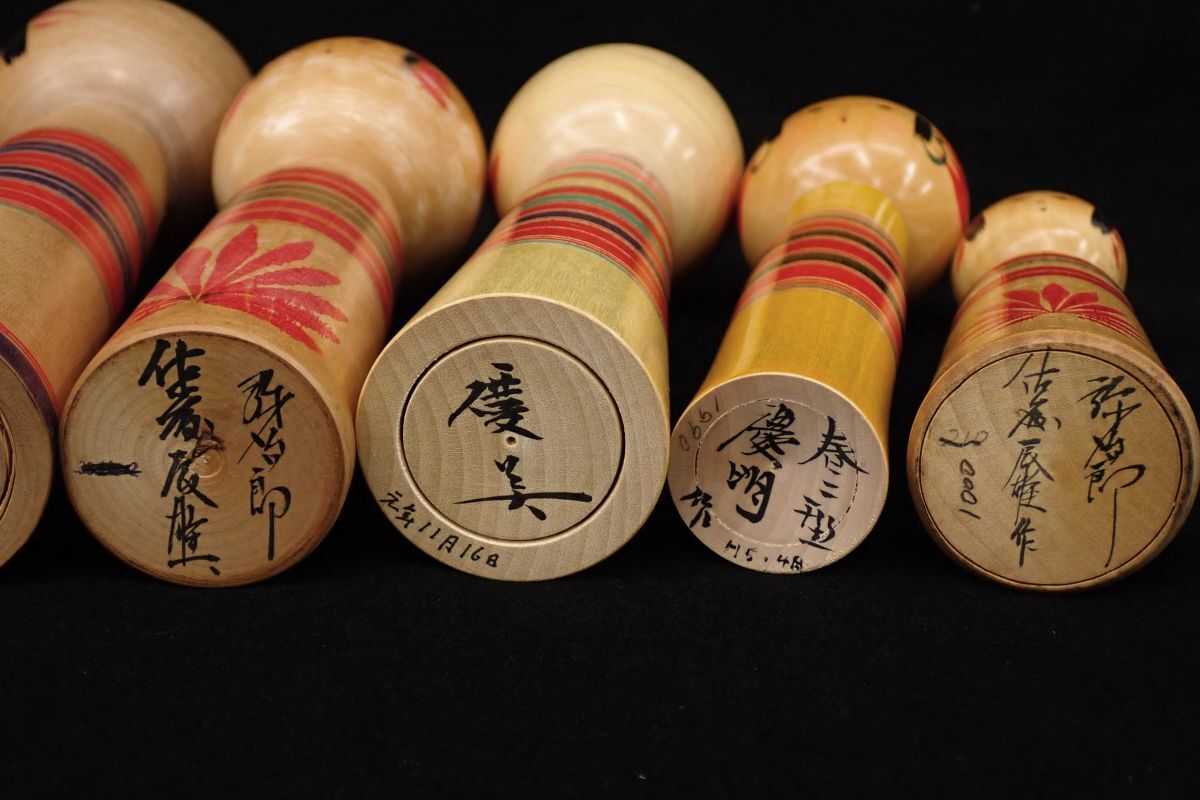 弥治郎
佐藤辰雄
慶美
元年11月16日
春二型
慶明
H5.4月
弥治郎
佐藤辰雄作